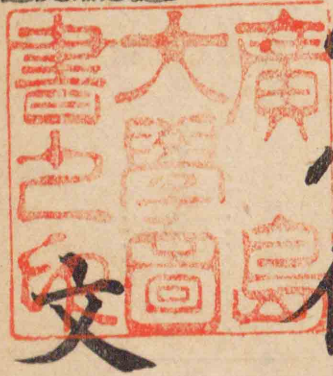 廣島
大學圖
書之印
文